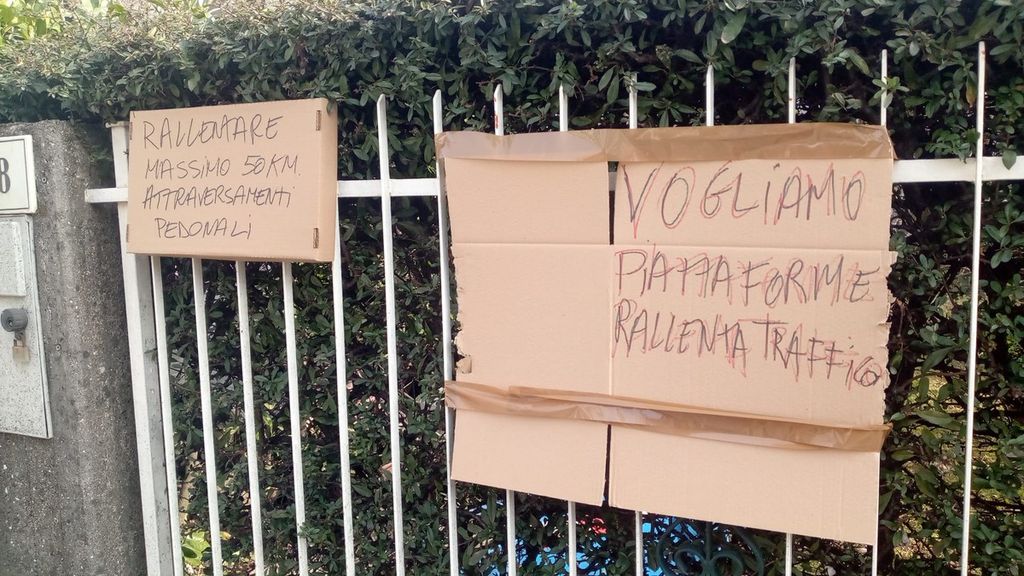 8
RALLENTARE
MASSIMO 50KM.
ATTRAVERSAMENTI
PEDONALI
VOGLIAMO
PIATTAFORME
RALLENTA TRAFFICO